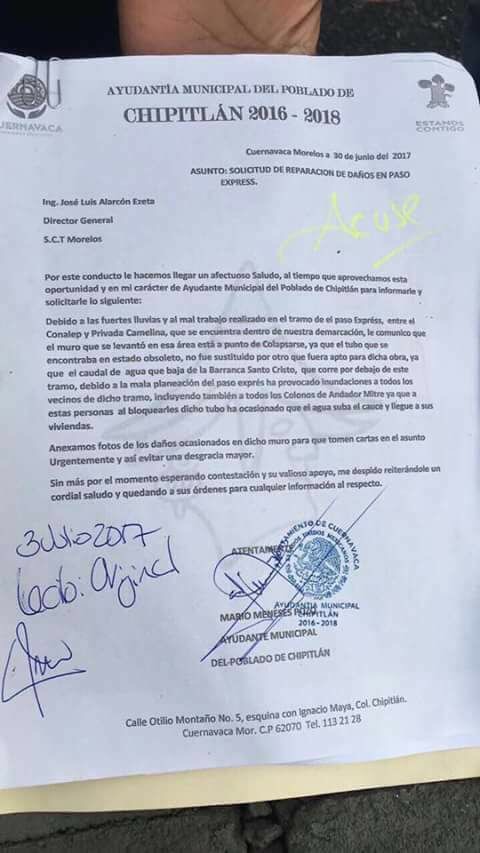 AYUDANTÍA MUNICIPAL DEL POBLADO DE
CHIPITLÁN 2016 - 2018
CUERNAVACA
ESTAMOS
CONTIGO
Cuernavaca Morelos a 30 de junio del 2017
ASUNTO: SOLICITUD DE REPARACION DE DAÑOS EN PASO
EXPRESS.
Ing. José Luis Alarcón Ezeta
Director General
S.C.T Morelos
Acuse
Por este conducto le hacemos llegar un afectuoso Saludo, al tiempo que aprovechamos esta
oportunidad y en mi carácter de Ayudante Municipal del Poblado de Chipitlán para informarle y
solicitarle lo siguiente:
Debido a las fuertes lluvias y al mal trabajo realizado en el tramo de el paso Exprés, entre el
Conalep y Privada Camelina, que se encuentra dentro de nuestra demarcación, le comunico que
el muro que se levantó en esa área está a punto de Colapsarse, ya que el tubo que se
encontraba en estado obsoleto, no fue sustituido por otro que fuera apto para dicha obra, ya
que el caudal de agua que baja de la Barranca Santo Cristo, que corre por debajo de este
tramo, debido a la mala planeación del paso exprés ha provocado inundaciones a todos los
vecinos de dicho tramo, incluyendo también a todos los Colonos de Andador Mitre ya que a
estas personas al bloquearles dicho tubo ha ocasionado que el agua suba el cauce y llegue a sus
viviendas.
Anexamos fotos de los daños ocasionados en dicho muro para que tomen cartas en el asunto
Urgentemente y así evitar una desgracia mayor.
Sin más por el momento esperando contestación y su valioso apoyo, me despido reiterándole un
cordial saludo y quedando a sus órdenes para cualquier información al respecto.
3 Julio 2017
ATENTAMENTE
AYUNTAMIENTO DE CUERNAVACA
ESTADOS UNIDOS MEXICANOS
AYUDANTÍA MUNICIPAL
CHIPITLÁN
2016-2018
MARIO MENESES
AYUDANTE MUNICIPAL
DEL POBLADO DE CHIPITLÁN
Calle Otilio Montaño No. 5, esquina con Ignacio Maya, Col. Chipitlán.
Cuernavaca Mor. C.P 62070 Tel. 113 21 28